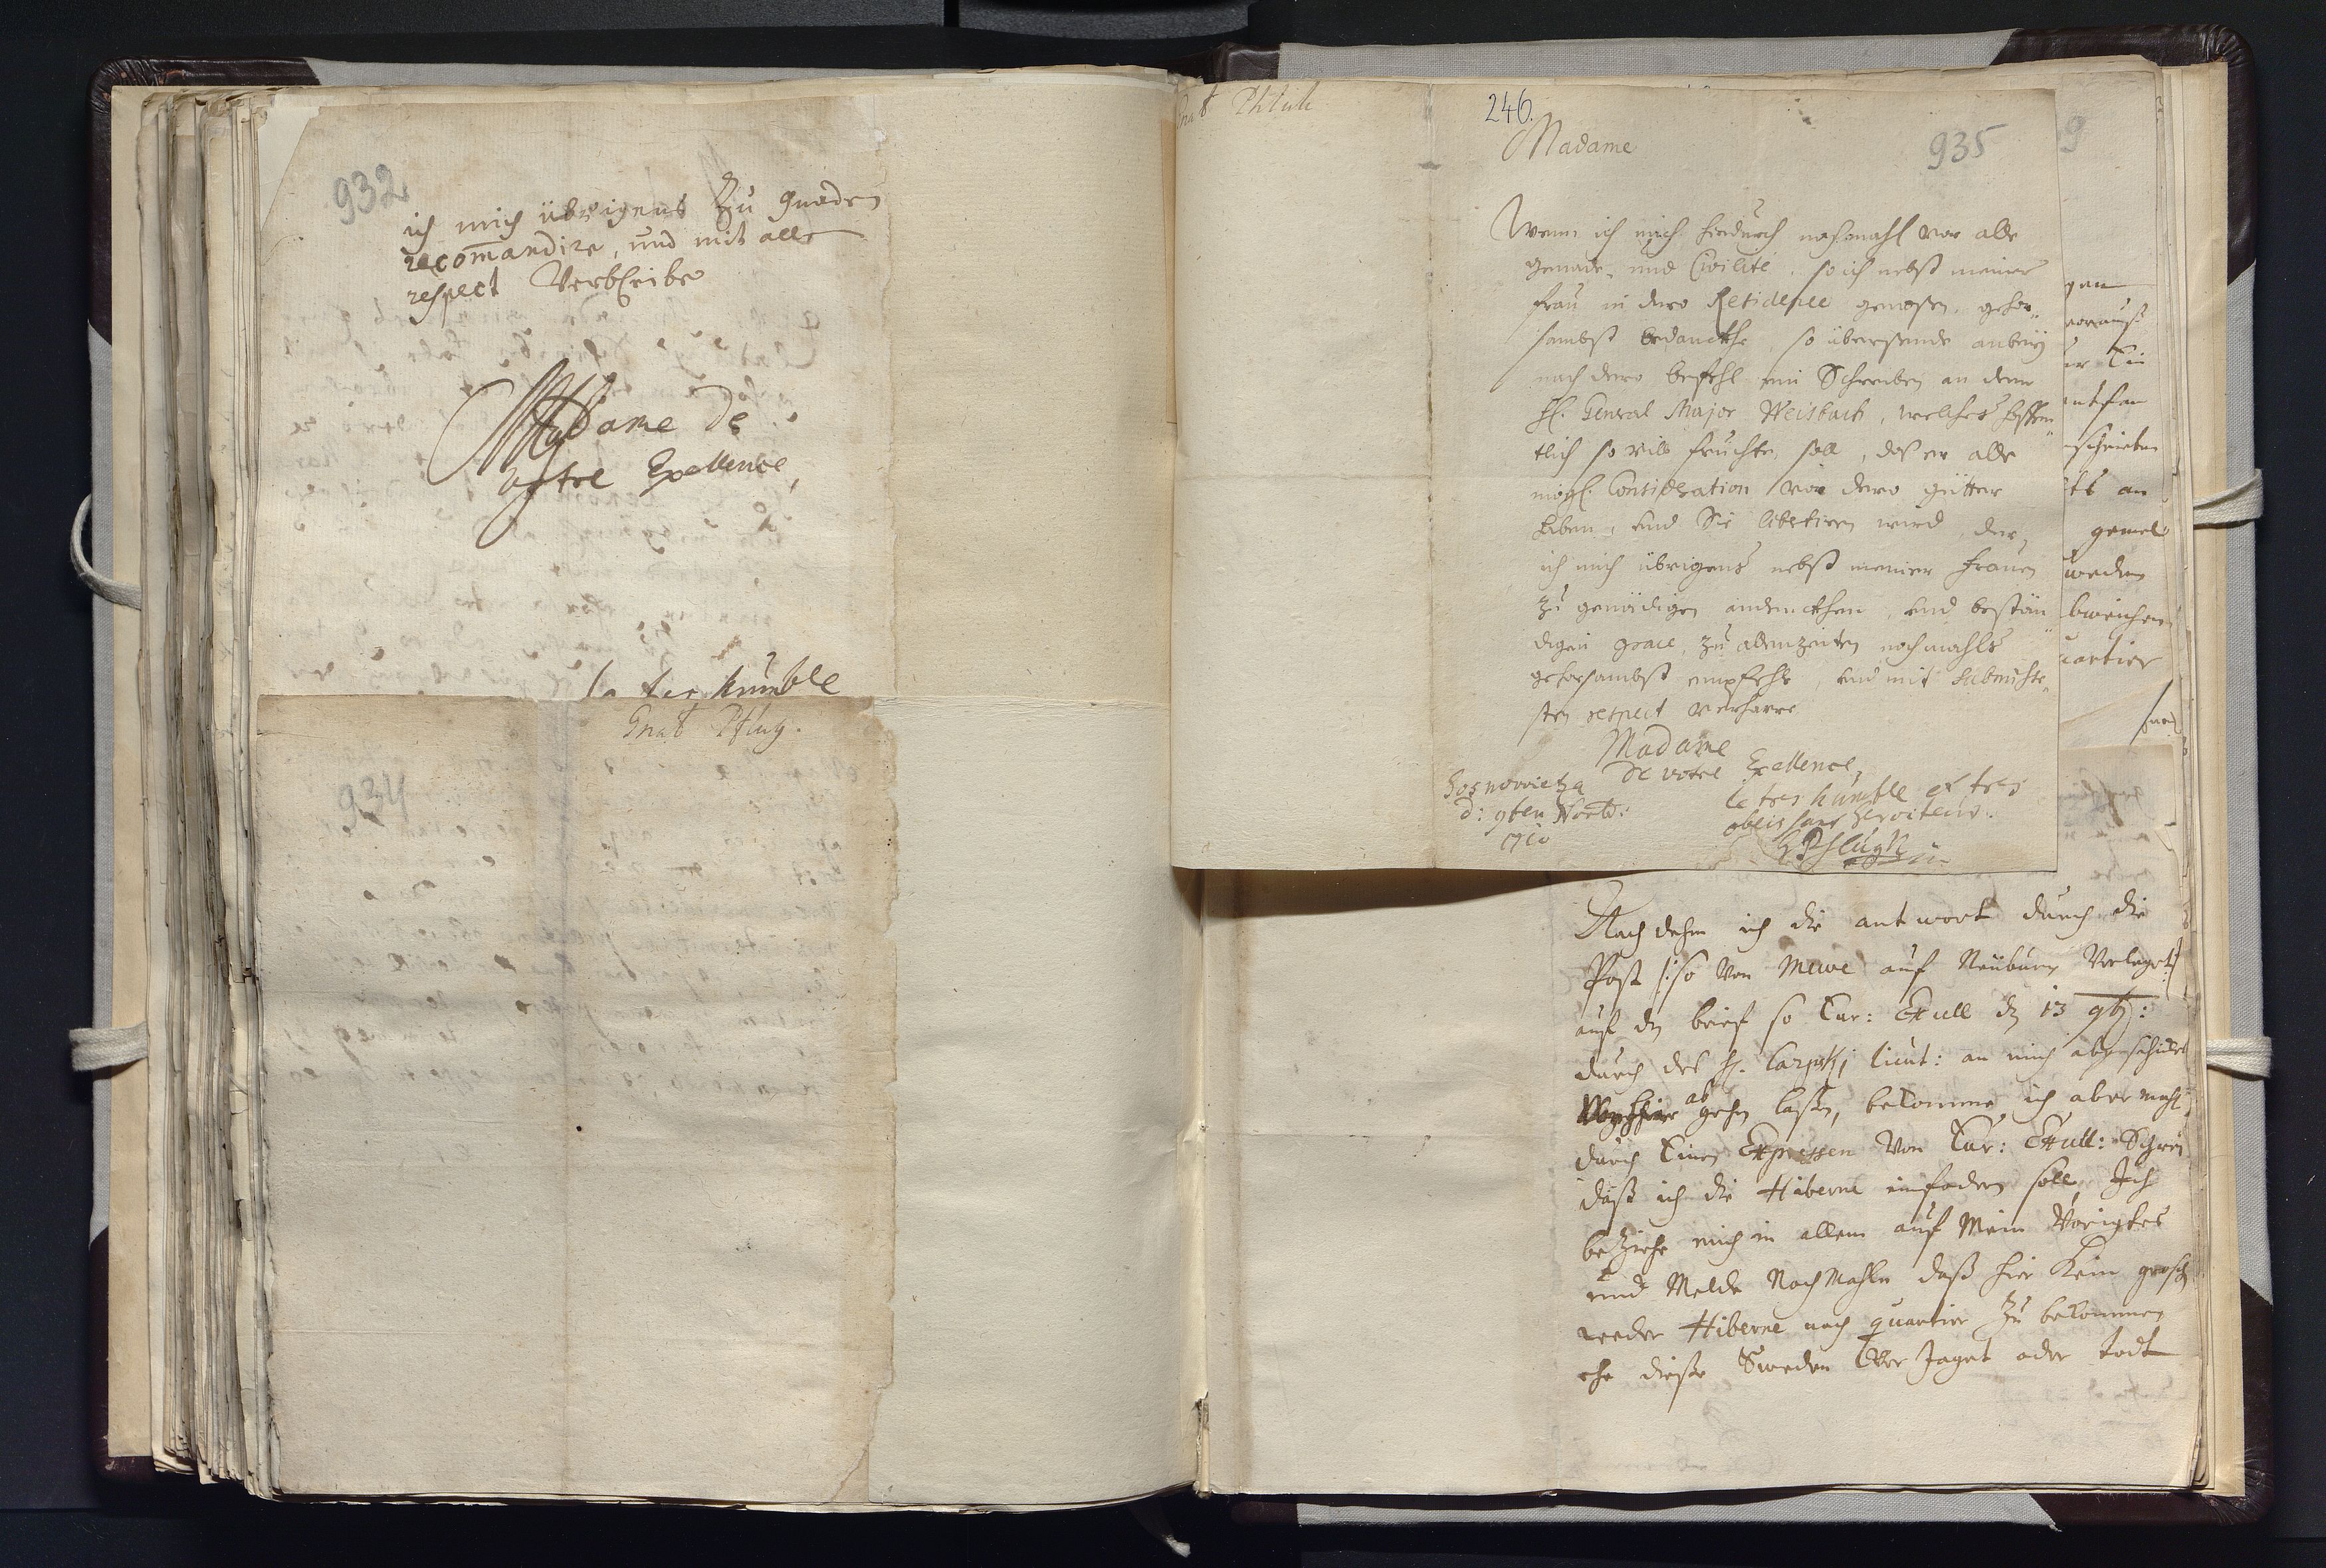 932
ich mich übrigens zu gnaden
recomandire, und mit aller
respect Verbleibe
Madame de
votre Exellence,
le tres humble
Gnat Pflug.
934
Gnat Pfluk
246.
935
9
Madame
Wenn ich mich hirdurch nochmahl vor alle
genade, und Civilité, so ich nebst meiner
frau in dero Residence genossen, gehor„
sambst bedanckhe, so übersende anbeÿ
nach dero befehl ein Schreiben an denn
H. General Major Weisbach, welches hoffen„
tlich so vill fruchten soll, das er alle
mögl. Consideration vor dero gütter
haben, und Sie liberiren wird, der,
ich mich übrigens nebst meiner frauen
zu genädigen andenckhen, und bestän„
digen grace, zu allenzeiten nochmahls
gehorsambst empfehle, und mit submisse„
sten respect verharre
Madame
de votre Exellence,
Sosnovietza
d: 9ten Novb:
1710
le tres humble et tres
obeissant serviteur.
G Pflugk
gan
voraus
ntfan
schrieben
ts an
gemel
weden
bweichen
uartier
Nach dehm ich die antwort durch die
Post /:so Von Mewe auf Neuburg Verlegt:/
auf dn brief so Eur: Exell dn 13 9b:
durch des H. Lieut: an mich abgeschickt
ab
gehn laßen, bekomme ich aber mahl
durch Einen Expressen Von Eur: Exell: Schrei
daß ich die Hiberne einfodern soll, Ich
beziehe mich in allem auf Mein Voriges
und Melde Noch Mahln daß hier Kein grosch
weder Hiberne noch quartier zu bekommen
ehe diese Sweden Ver Jaget oder todt